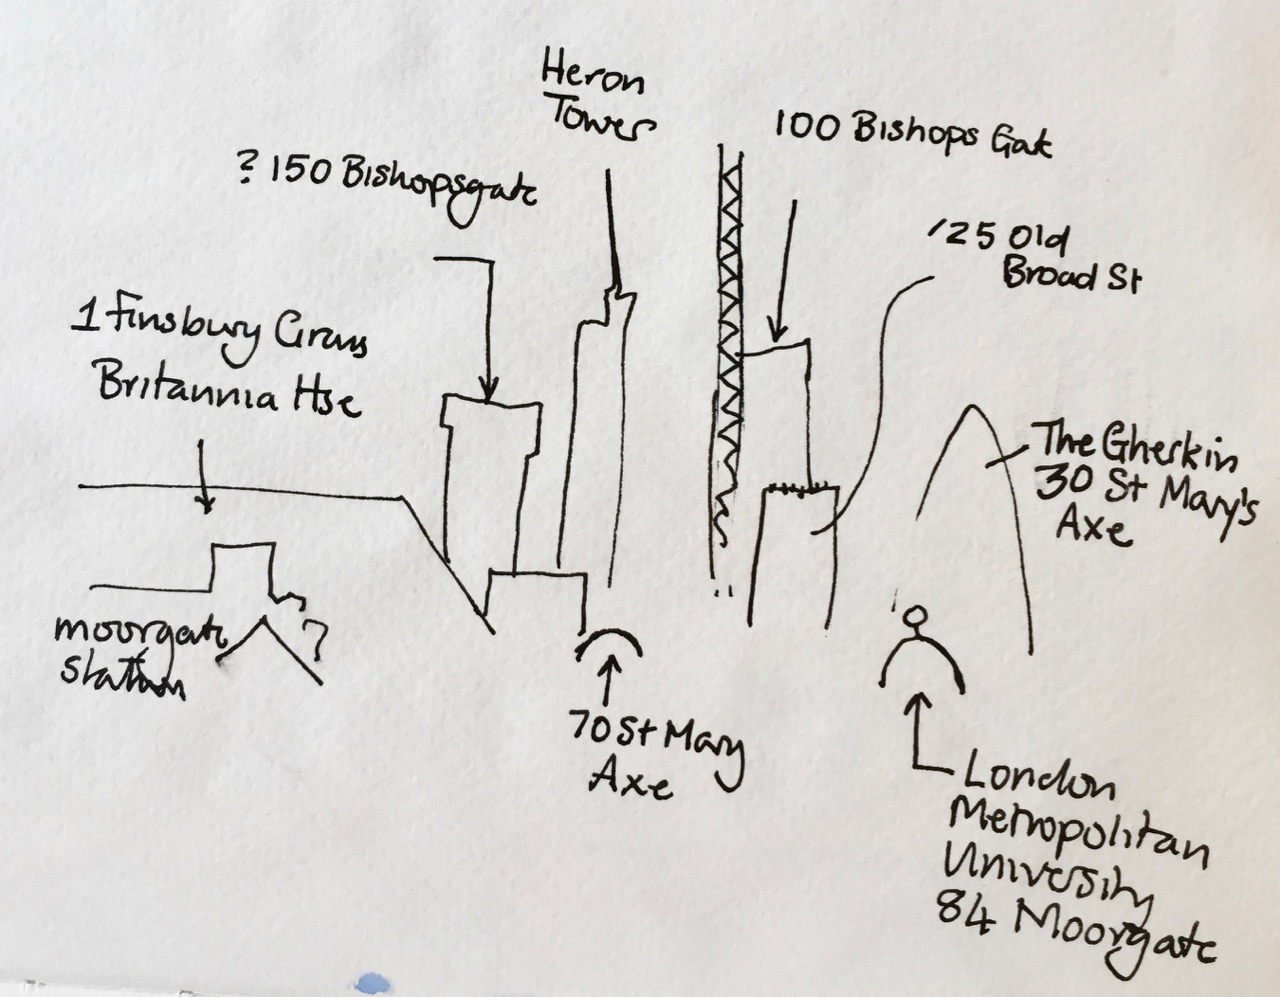 Heron
Tower
100 Bishops Gate
? 150 Bishopsgate
125 Old
Broad St
1 Finsbury Circus
Britannia Hse
The Gherkin
30 St Mary's
Axe
moorgate
station
?
70 St Mary
Axe
London
Metropolitan
University
84 Moorgate